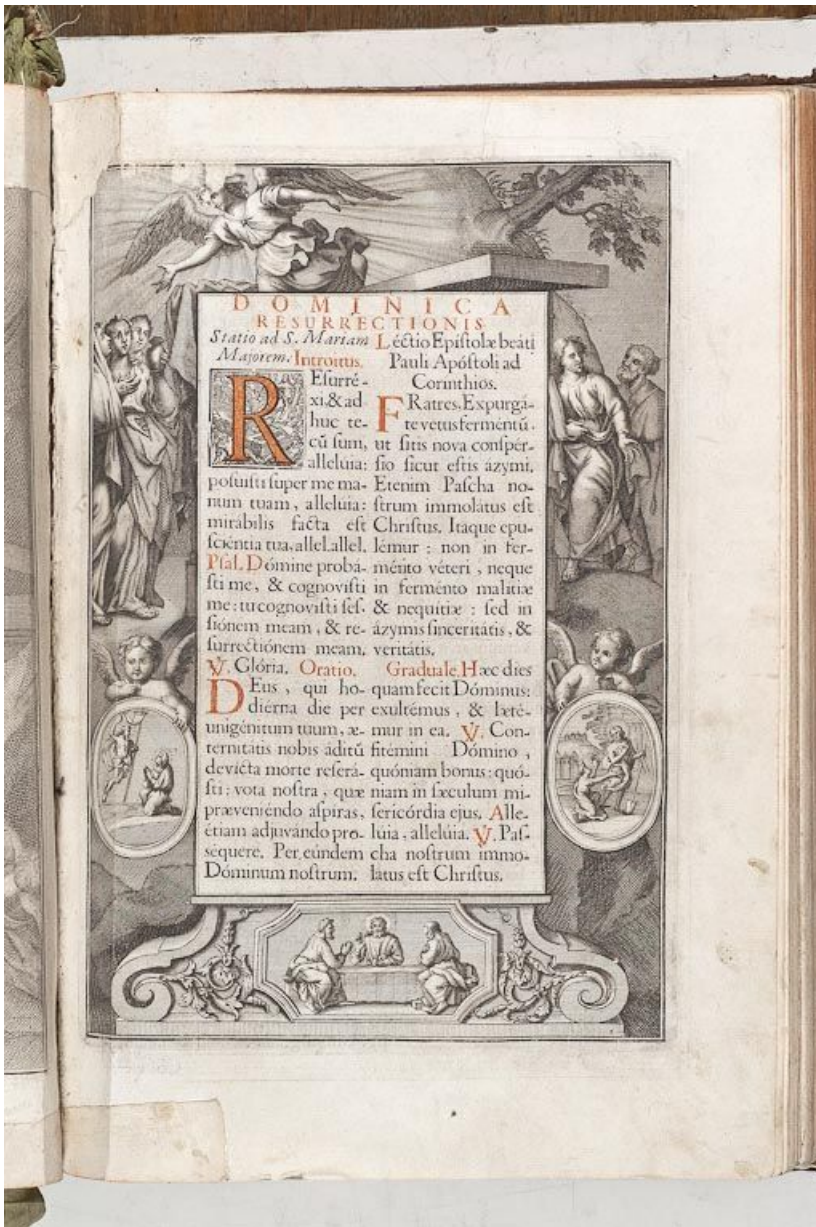 DOMINICA
RESURRECTIONIS
Statio ad S. Mariam
Majorem. Introitus.
REſurré-
xi, & ad
huc te-
cū ſum,
alleluia:
poſuiſti ſuper me ma-
num tuam, alleluia:
mirábilis facta eſt
ſciéntia tua, allel. allel.
Pſal. Dómine probá-
ſti me, & cognoviſti
me: tu cognoviſti ſeſ-
ſiónem meam, & re-
ſurrectiónem meam.
℣. Glória. Oratio.
DEus, qui ho-
diérna die per
unigénitum tuum, æ-
ternitátis nobis áditū
devícta morte reſerá-
ſti: vota noſtra, quæ
præveniéndo aſpiras,
étiam adjuvándo pro-
séquere. Per eúndem
Dóminum noſtrum.
Léctio Epiſtolæ beáti
Pauli Apóſtoli ad
Corínthios.
FRatres, Expurgá-
te vetus ferméntū,
ut ſitis nova conſpér-
ſio ſicut eſtis ázymi.
Etenim Paſcha no-
ſtrum immolátus eſt
Chriſtus. Itaque epu-
lémur: non in fer-
ménto véteri, neque
in ferménto malítiæ
& nequítiæ: ſed in
ázymis ſinceritátis, &
veritátis.
Graduale. Hæc dies
quam fecit Dóminus:
exultémus, & læté-
mur in ea. ℣. Con-
fitémini Dómino,
quóniam bonus: quó-
niam in ſæculum mi-
ſericórdia ejus. Alle-
lúia, allelúia. ℣. Paſ-
cha noſtrum immo-
latus eſt Chriſtus.